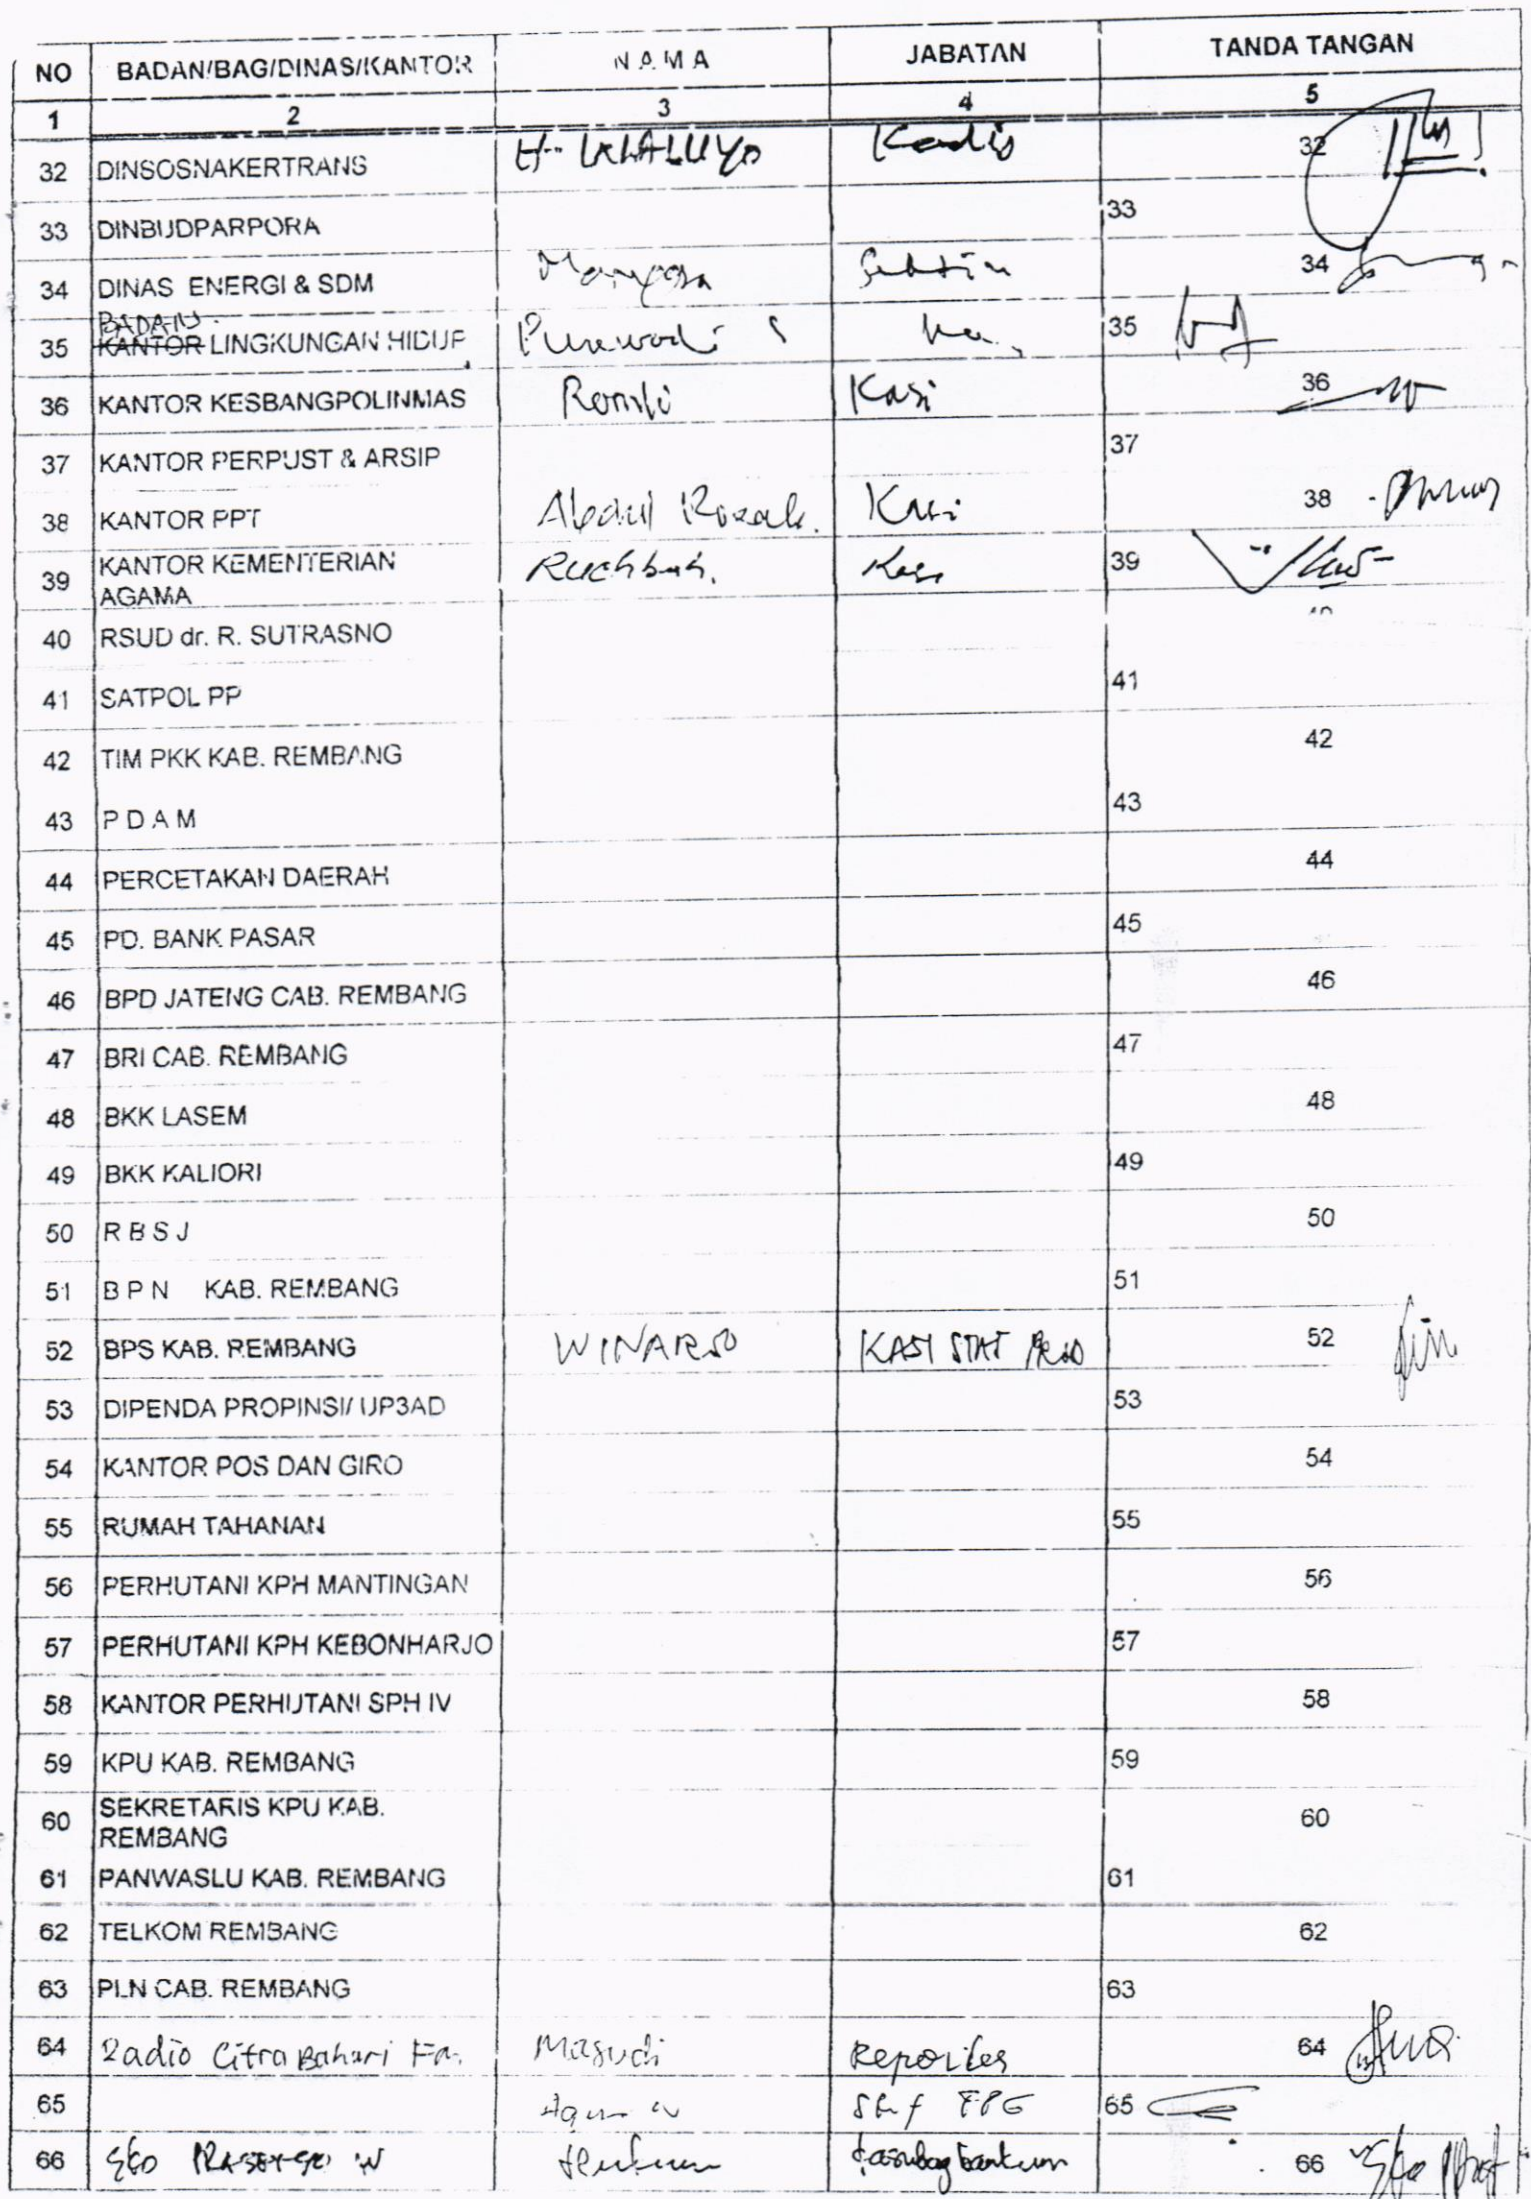 NO BADAN/BAG/DINAS/KANTOR N A M A JABATAN TANDA TANGAN
1 2 3 4 5
32 DINSOSNAKERTRANS H. WALUYO Kadis 32
33 DINBUDPARPORA 33
34 DINAS ENERGI & SDM 34
BADAN
35 KANTOR LINGKUNGAN HIDUP Purwadi S Ka 35
36 KANTOR KESBANGPOLINMAS Kasi 36
37 KANTOR PERPUST & ARSIP 37
38 KANTOR PPT Abdul Rozak. Kasi 38
39 KANTOR KEMENTERIAN AGAMA Kasi 39
40 RSUD dr. R. SUTRASNO 40
41 SATPOL PP 41
42 TIM PKK KAB. REMBANG 42
43 P D A M 43
44 PERCETAKAN DAERAH 44
45 PD. BANK PASAR 45
46 BPD JATENG CAB. REMBANG 46
47 BRI CAB. REMBANG 47
48 BKK LASEM 48
49 BKK KALIORI 49
50 R B S J 50
51 B P N KAB. REMBANG 51
52 BPS KAB. REMBANG WINARSO KASI STAT PROD 52
53 DIPENDA PROPINSI/ UP3AD 53
54 KANTOR POS DAN GIRO 54
55 RUMAH TAHANAN 55
56 PERHUTANI KPH MANTINGAN 56
57 PERHUTANI KPH KEBONHARJO 57
58 KANTOR PERHUTANI SPH IV 58
59 KPU KAB. REMBANG 59
60 SEKRETARIS KPU KAB. REMBANG 60
61 PANWASLU KAB. REMBANG 61
62 TELKOM REMBANG 62
63 PLN CAB. REMBANG 63
64 Radio Citra Bahari Fm. Masudi Reporter 64
65 Agus W Staf 65
66 EKO W Hukum Kasubag bankum 66